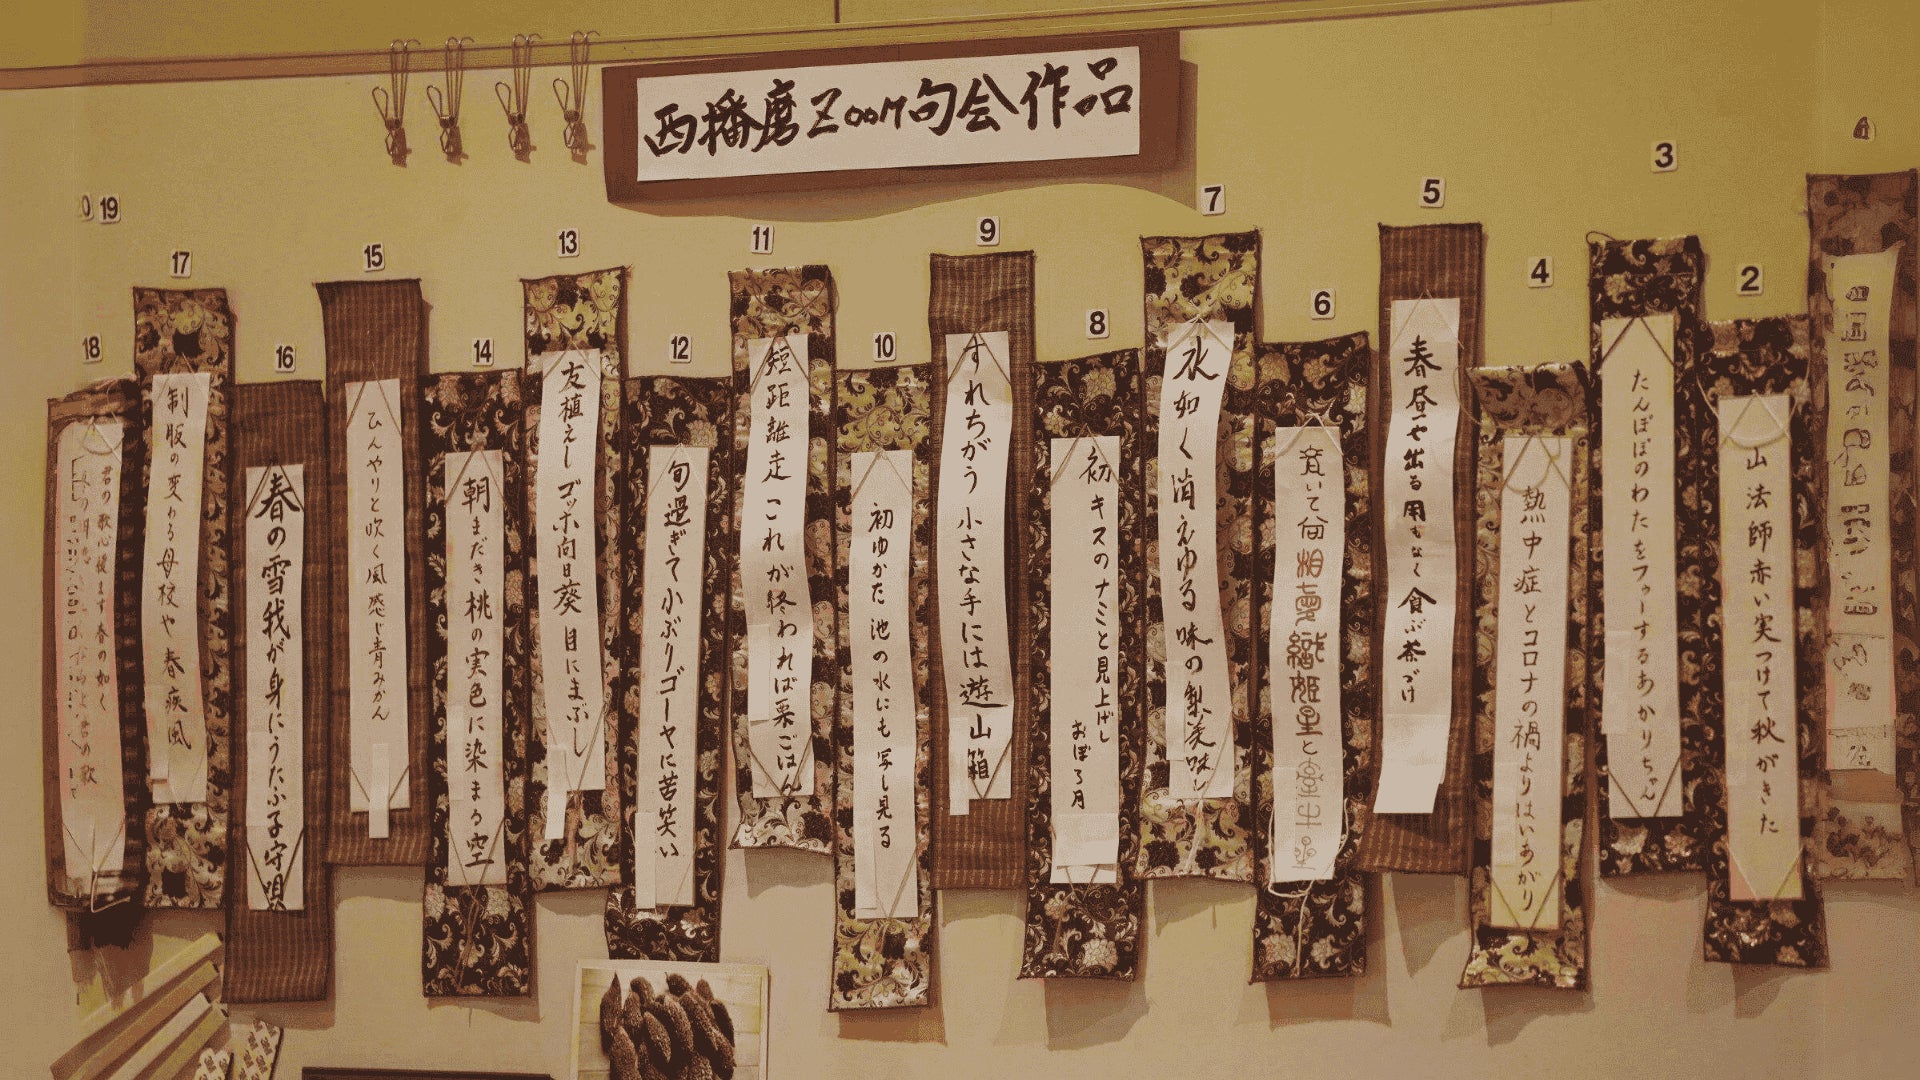 西播磨Zoom句会作品
2
山法師赤い実つけて秋がきた
3
たんぽぽのわたをフゥーするあかりちゃん
4
熱中症とコロナの禍よりはいあがり
5
春昼や出る用もなく食ぶ茶づけ
6
織姫星と
7
水如く消えゆる味の梨美味し
8
初キスのナミと見上げし
おぼろ月
9
すれちがう小さな手には遊山箱
10
初ゆかた池の水にも写し見る
11
短距離走これが終われば栗ごはん
12
旬過ぎて小ぶりゴーヤに苦笑い
13
友植えしゴッホ向日葵目にまぶし
14
朝まだき桃の実色に染まる空
15
ひんやりと吹く風感じ青みかん
16
春の雪我が身にうたふ子守唄
17
制服の変わる母校や春疾風
18
19